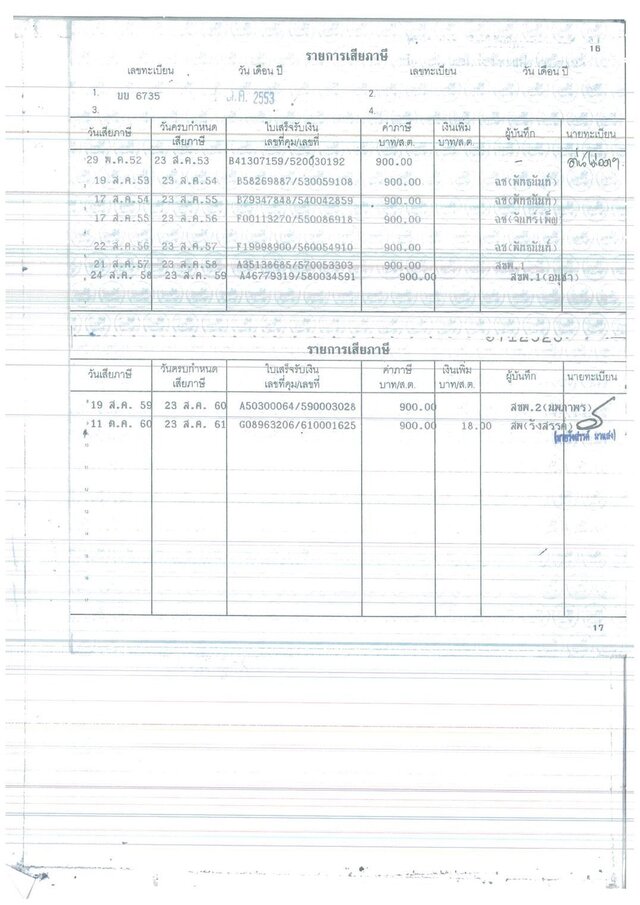 16
รายการเสียภาษี
เลขทะเบียน วัน เดือน ปี เลขทะเบียน วัน เดือน ปี
1. บบ 6735 2553 2.
3. 4.
วันเสียภาษี วันครบกำหนดเสียภาษี ใบเสร็จรับเงินเลขที่คุม/เลขที่ ค่าภาษีบาท/ส.ต. เงินเพิ่มบาท/ส.ต. ผู้บันทึก นายทะเบียน
29 พ.ค.52 23 ส.ค.53 B41307159/520030192 900.00 -
19 ส.ค.53 23 ส.ค.54 B58269887/530059108 900.00 ฉช(พัทธมันท์)
17 ส.ค.54 23 ส.ค.55 B79347848/540042859 900.00 ฉช(พัทธมันท์)
17 ส.ค.55 23 ส.ค.56 F00113270/550086918 900.00 ฉช(จันทร์เพ็ญ
22 ส.ค.56 23 ส.ค.57 F19998900/560054910 900.00 ฉช(พัทธมันท์)
21 ส.ค.57 23 ส.ค.58 A35138685/570053303 900.00 สขพ.1
24 ส.ค. 58 23 ส.ค. 59 A46779319/580034591 900.00 สขพ.1(อนุชา)
รายการเสียภาษี
วันเสียภาษี วันครบกำหนดเสียภาษี ใบเสร็จรับเงินเลขที่คุม/เลขที่ ค่าภาษีบาท/ส.ต. เงินเพิ่มบาท/ส.ต. ผู้บันทึก นายทะเบียน
19 ส.ค. 59 23 ส.ค. 60 A50300064/590003028 900.00 สขพ.2(นพภาพร)
11 ต.ค. 60 23 ส.ค. 61 G08963206/610001625 900.00 18.00 สพ(รังสรรค์)
17